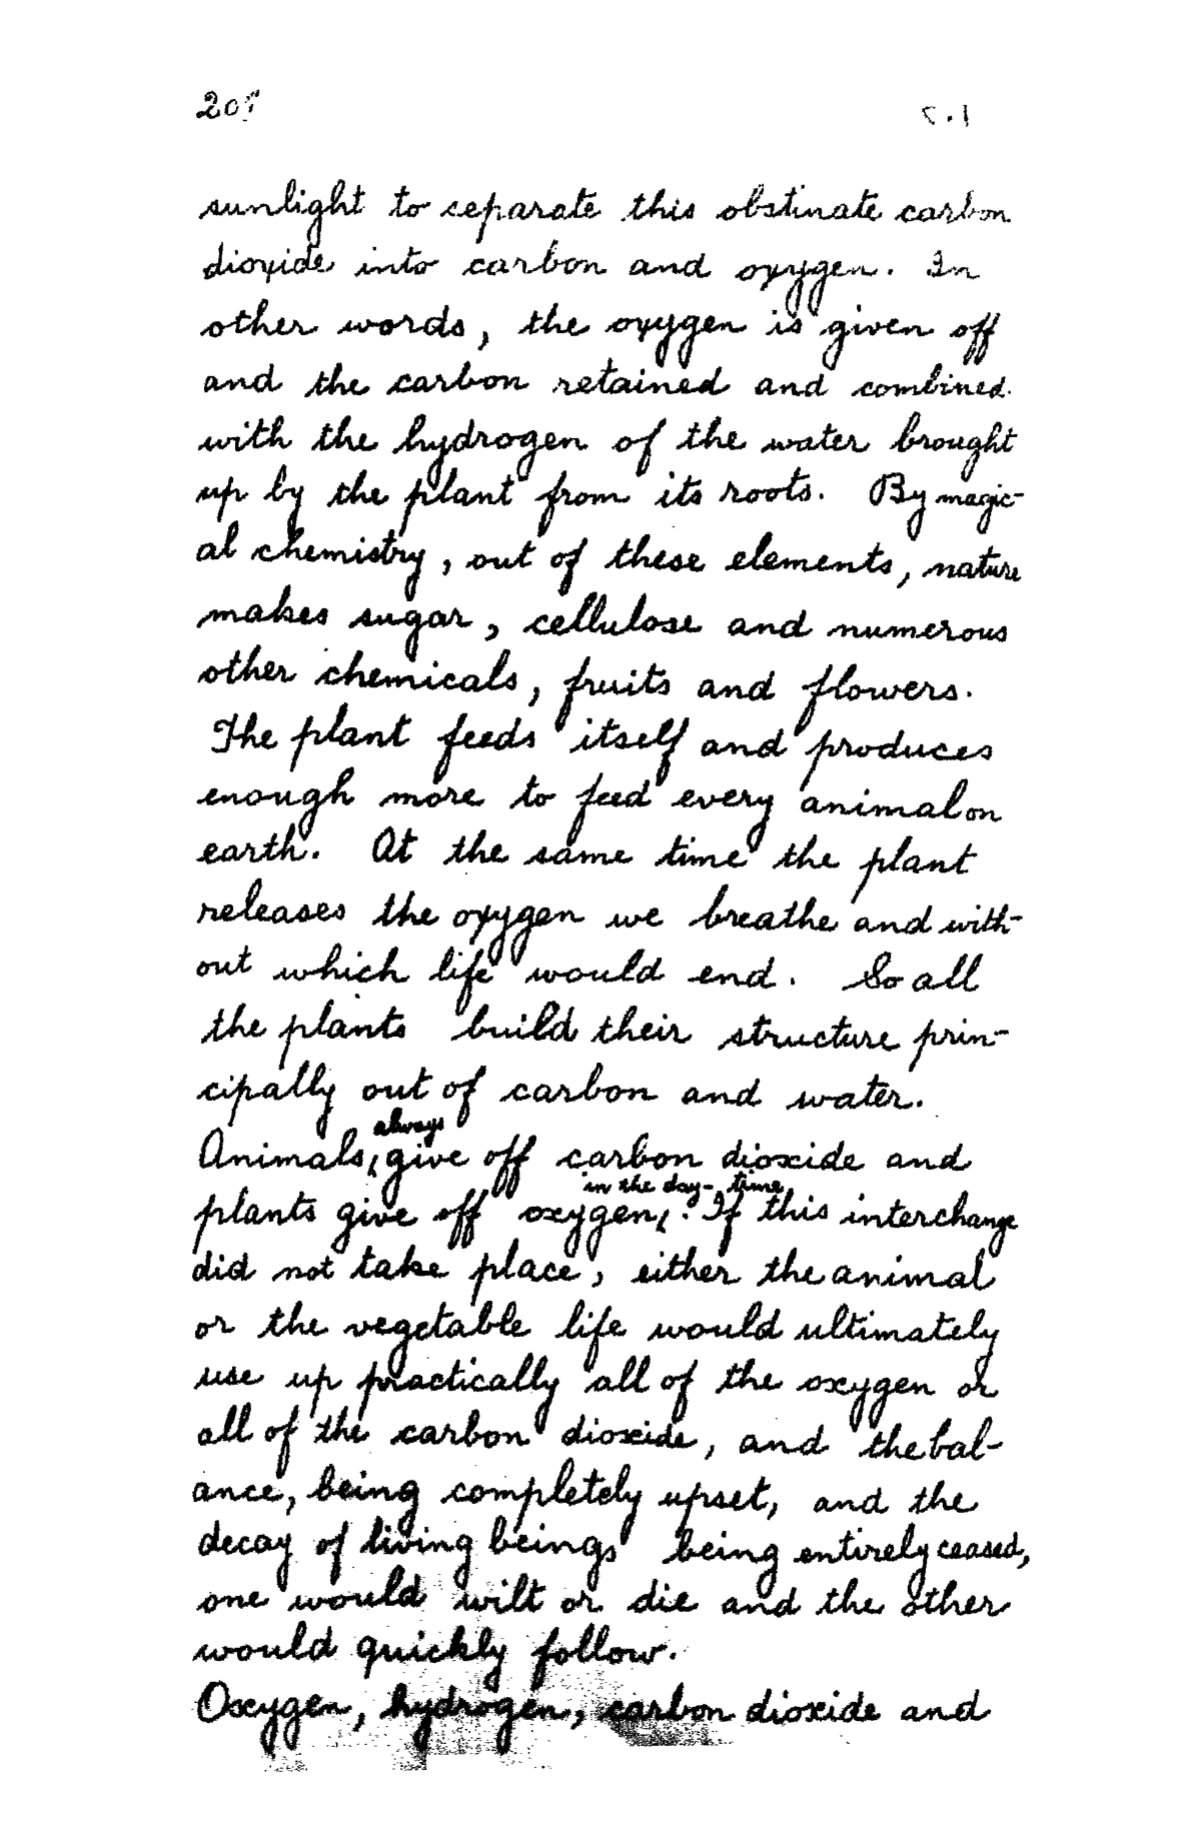 sunlight to separate this obstinate carbon
dioxide into carbon and oxygen. In
other words, the oxygen is given off
and the carbon retained and combined
with the hydrogen of the water brought
up by the plant from its roots. By magic-
al chemistry, out of these elements, nature
makes sugar, cellulose and numerous
other chemicals, fruits and flowers.
The plant feeds itself and produces
enough more to feed every animal on
earth. At the same time the plant
releases the oxygen we breathe and with-
out which life would end. So all
the plants build their structure prin-
cipally out of carbon and water.
always
Animals, give off carbon dioxide and
in the day-time
plants give off oxygen. If this interchange
did not take place, either the animal
or the vegetable life would ultimately
use up practically all of the oxygen or
all of the carbon dioxide, and the bal-
ance, being completely upset, and the
decay of living beings being entirely ceased,
one would wilt or die and the other
would quickly follow.
Oxygen, hydrogen, carbon dioxide and